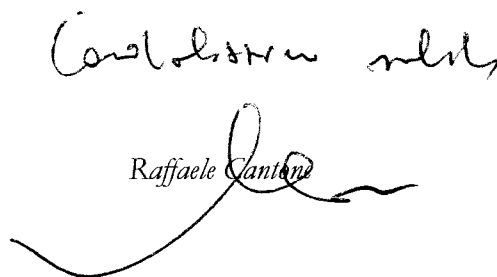 Cordialissimi saluti
Raffaele Cantone